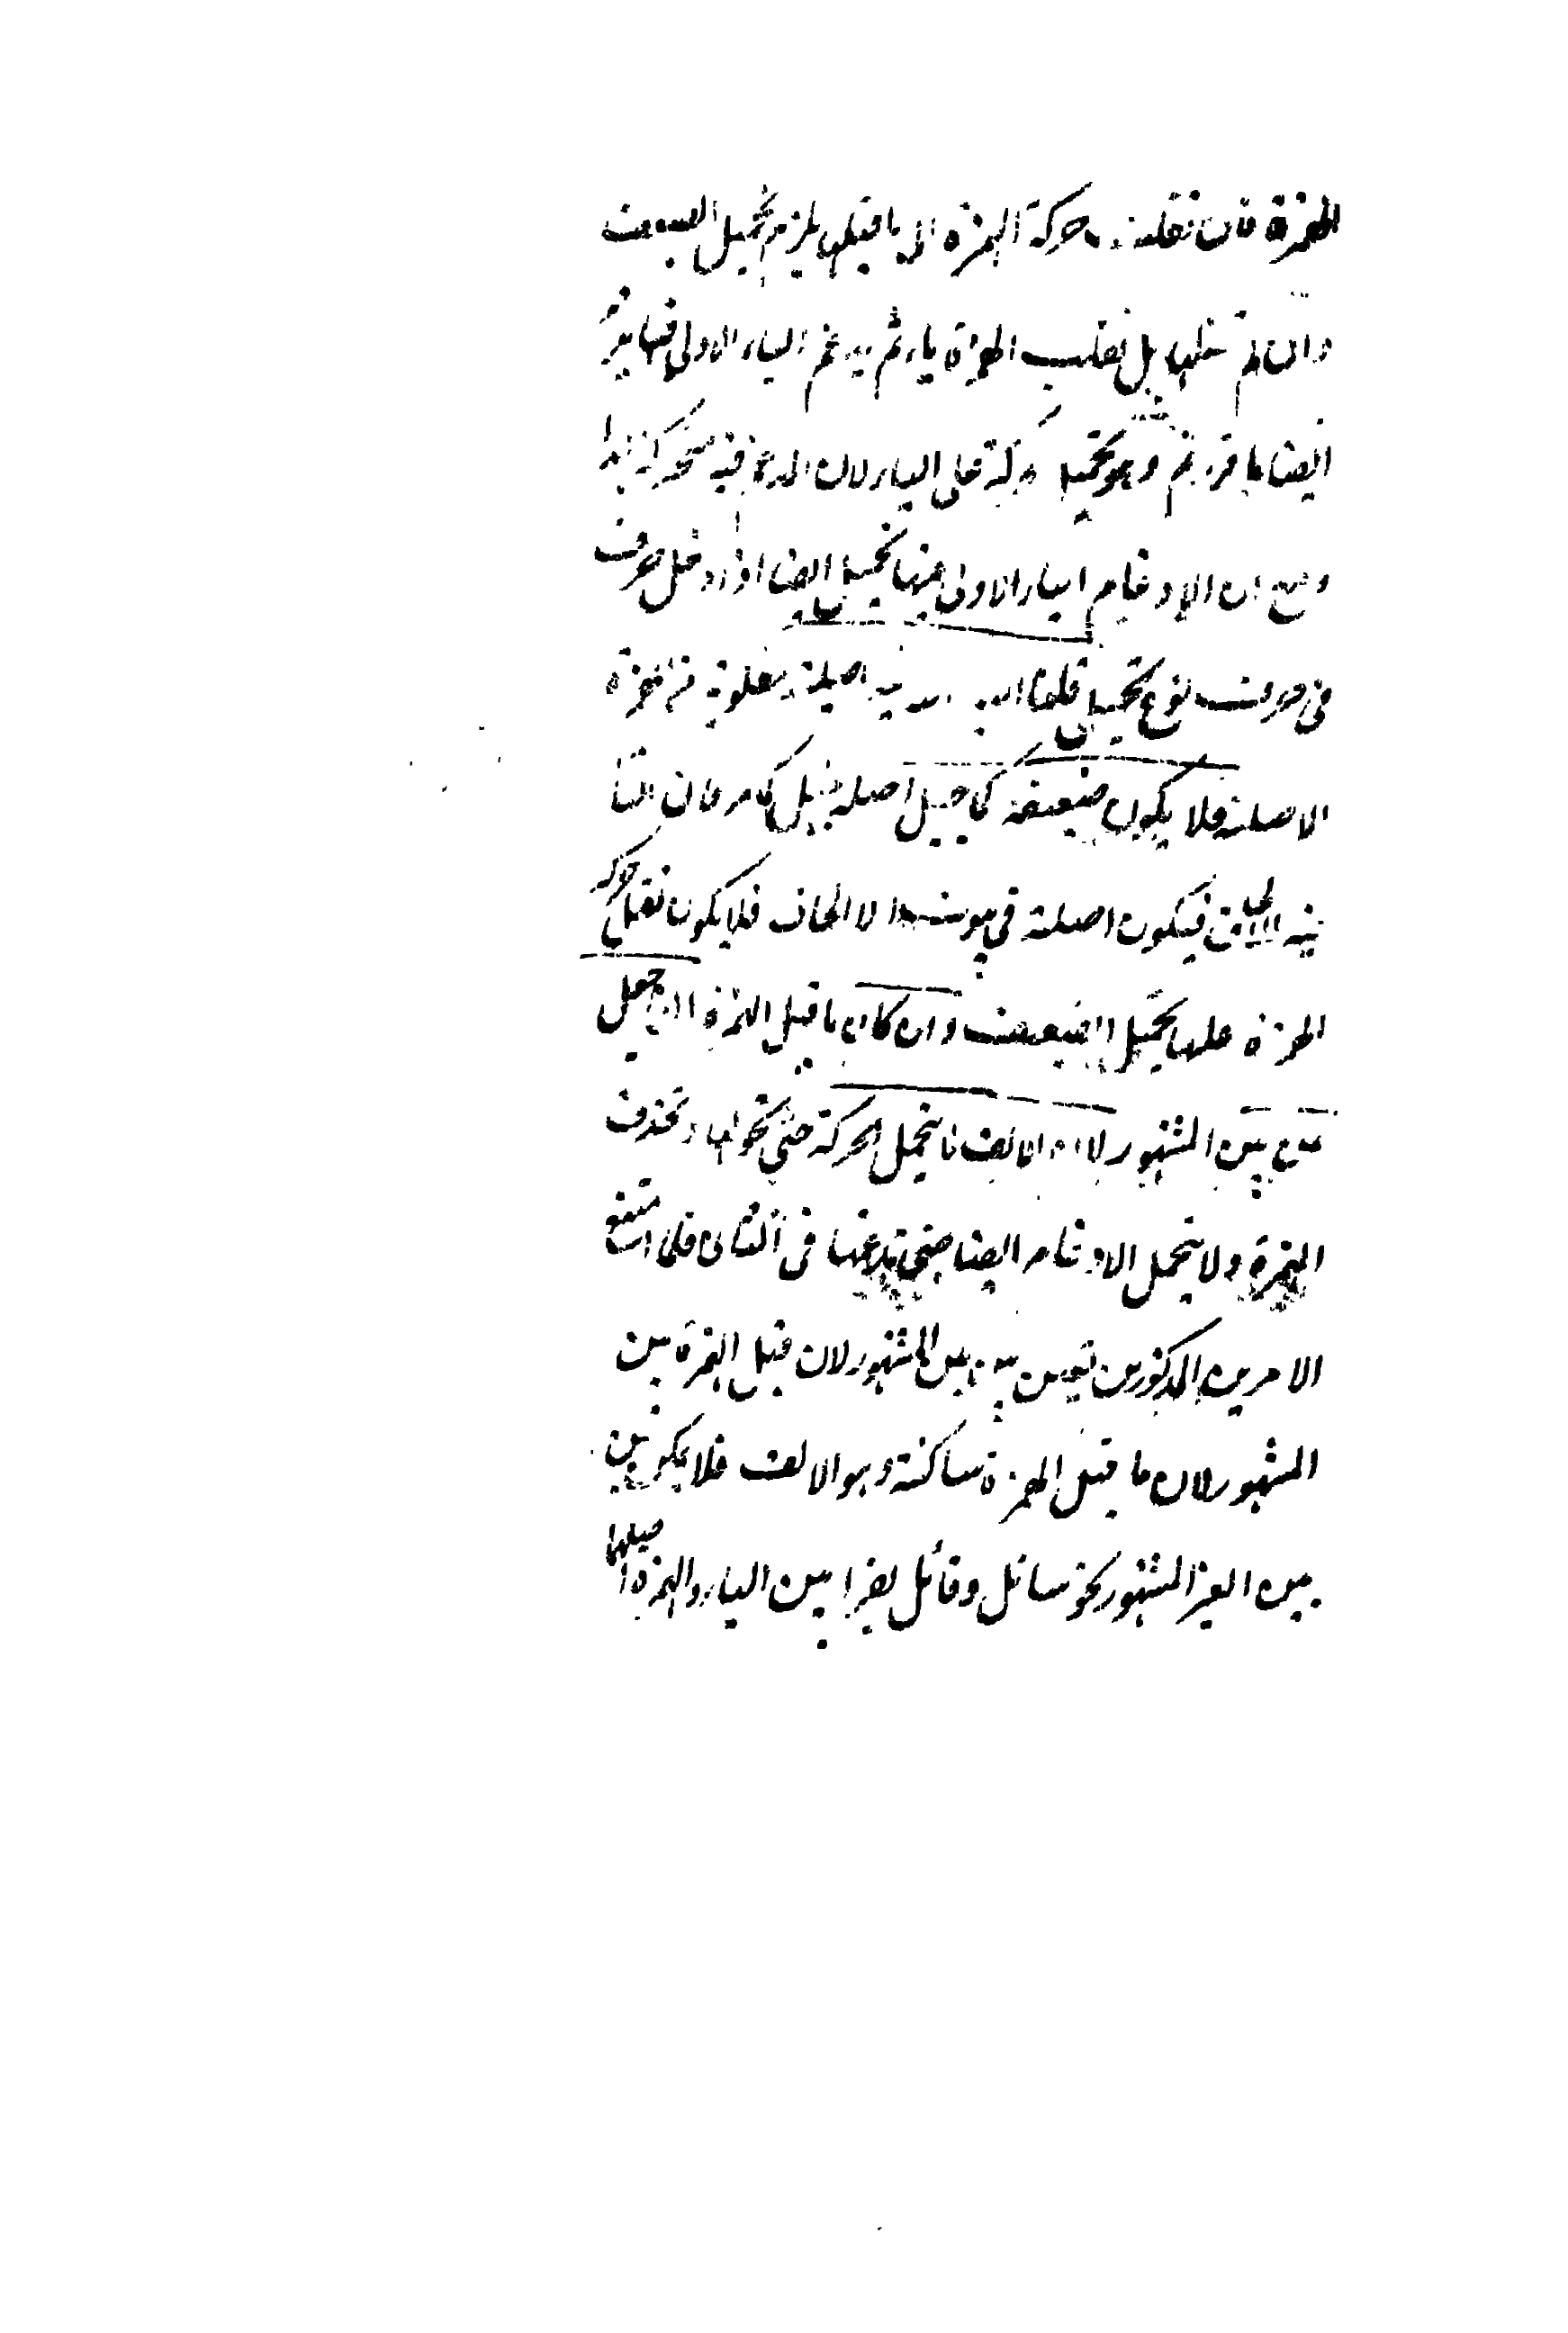 الهمزة فان نقلت حركة الهمزة الى ما قبلها يلزم تحميل الضعيف
وان لم تنقلها بل نقلب الهمزة ياء ثم يدغم الياء الاولى فيها يلزم
ايضا ما فررتم وهو تحميل حركة على الياء لان المدغم فيه متحركة ابدا
ومع ان الادغام الياء الاولى فيها تحميل ايضا اذ ادخل حرف
فى حرف نوع تحميل قلنا الياء اصلية مقلوبة من همزة
الاصلية فلا يكون ضعيفة كما جيل اصله جيئل كما مر فان الثا
نية فيكون اصلية فى هو الا الحاق فلا يكون نقل حركة
الهمزة عليها تحميل الضعيف وان كان ما قبل الهمزة الفا جعل
بين بين المشهور لان الالف لا يتحمل الحركة حتى تحولها وتحذف
الهمزة ولا يتحمل الادغام ايضا حتى تدغمها فى الثانى فلما امتنع
الامرين المذكورين تعين بين بين المشهور لان قبل الهمزة بين
المشهور لان ما قبل الهمزة ساكنة وهو الالف فلا يكون بين
بين الغير المشهور نحو سائل وقائل يقرا بين الياء والهمزة اصلهما